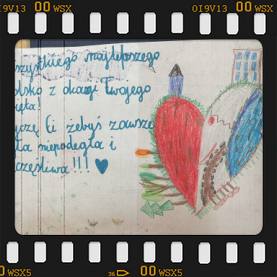 I9V13 00 WSX 0I9V13 00 WSX
szystkiego najlepszego
olsko z okazji Twojego
ięta!
yczę Ci żebyś zawsze
ła niepodegła i
częśliwa!!!
00 WSX5 36 00 WSX5